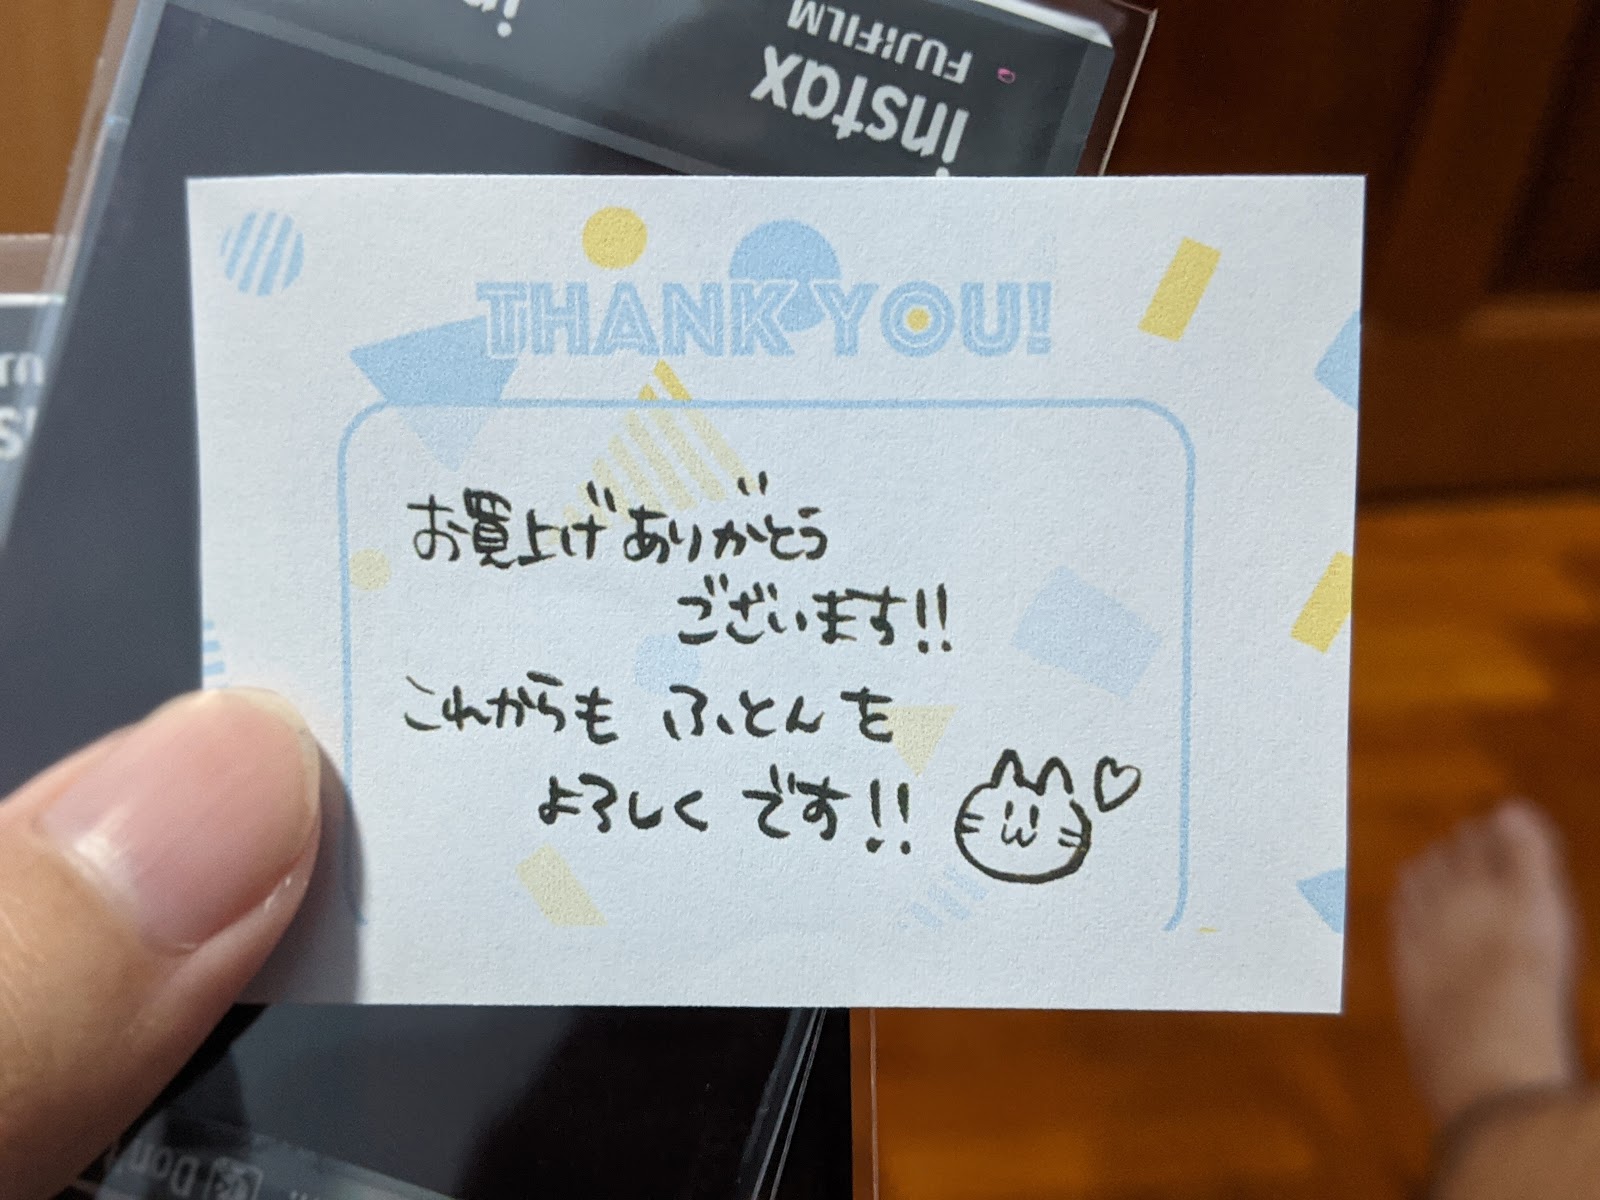 in
instax
FUJIFILM
THANK YOU!
お買上げありがとう
ございます!!
これからも ふとんを
よろしく です!!
Don